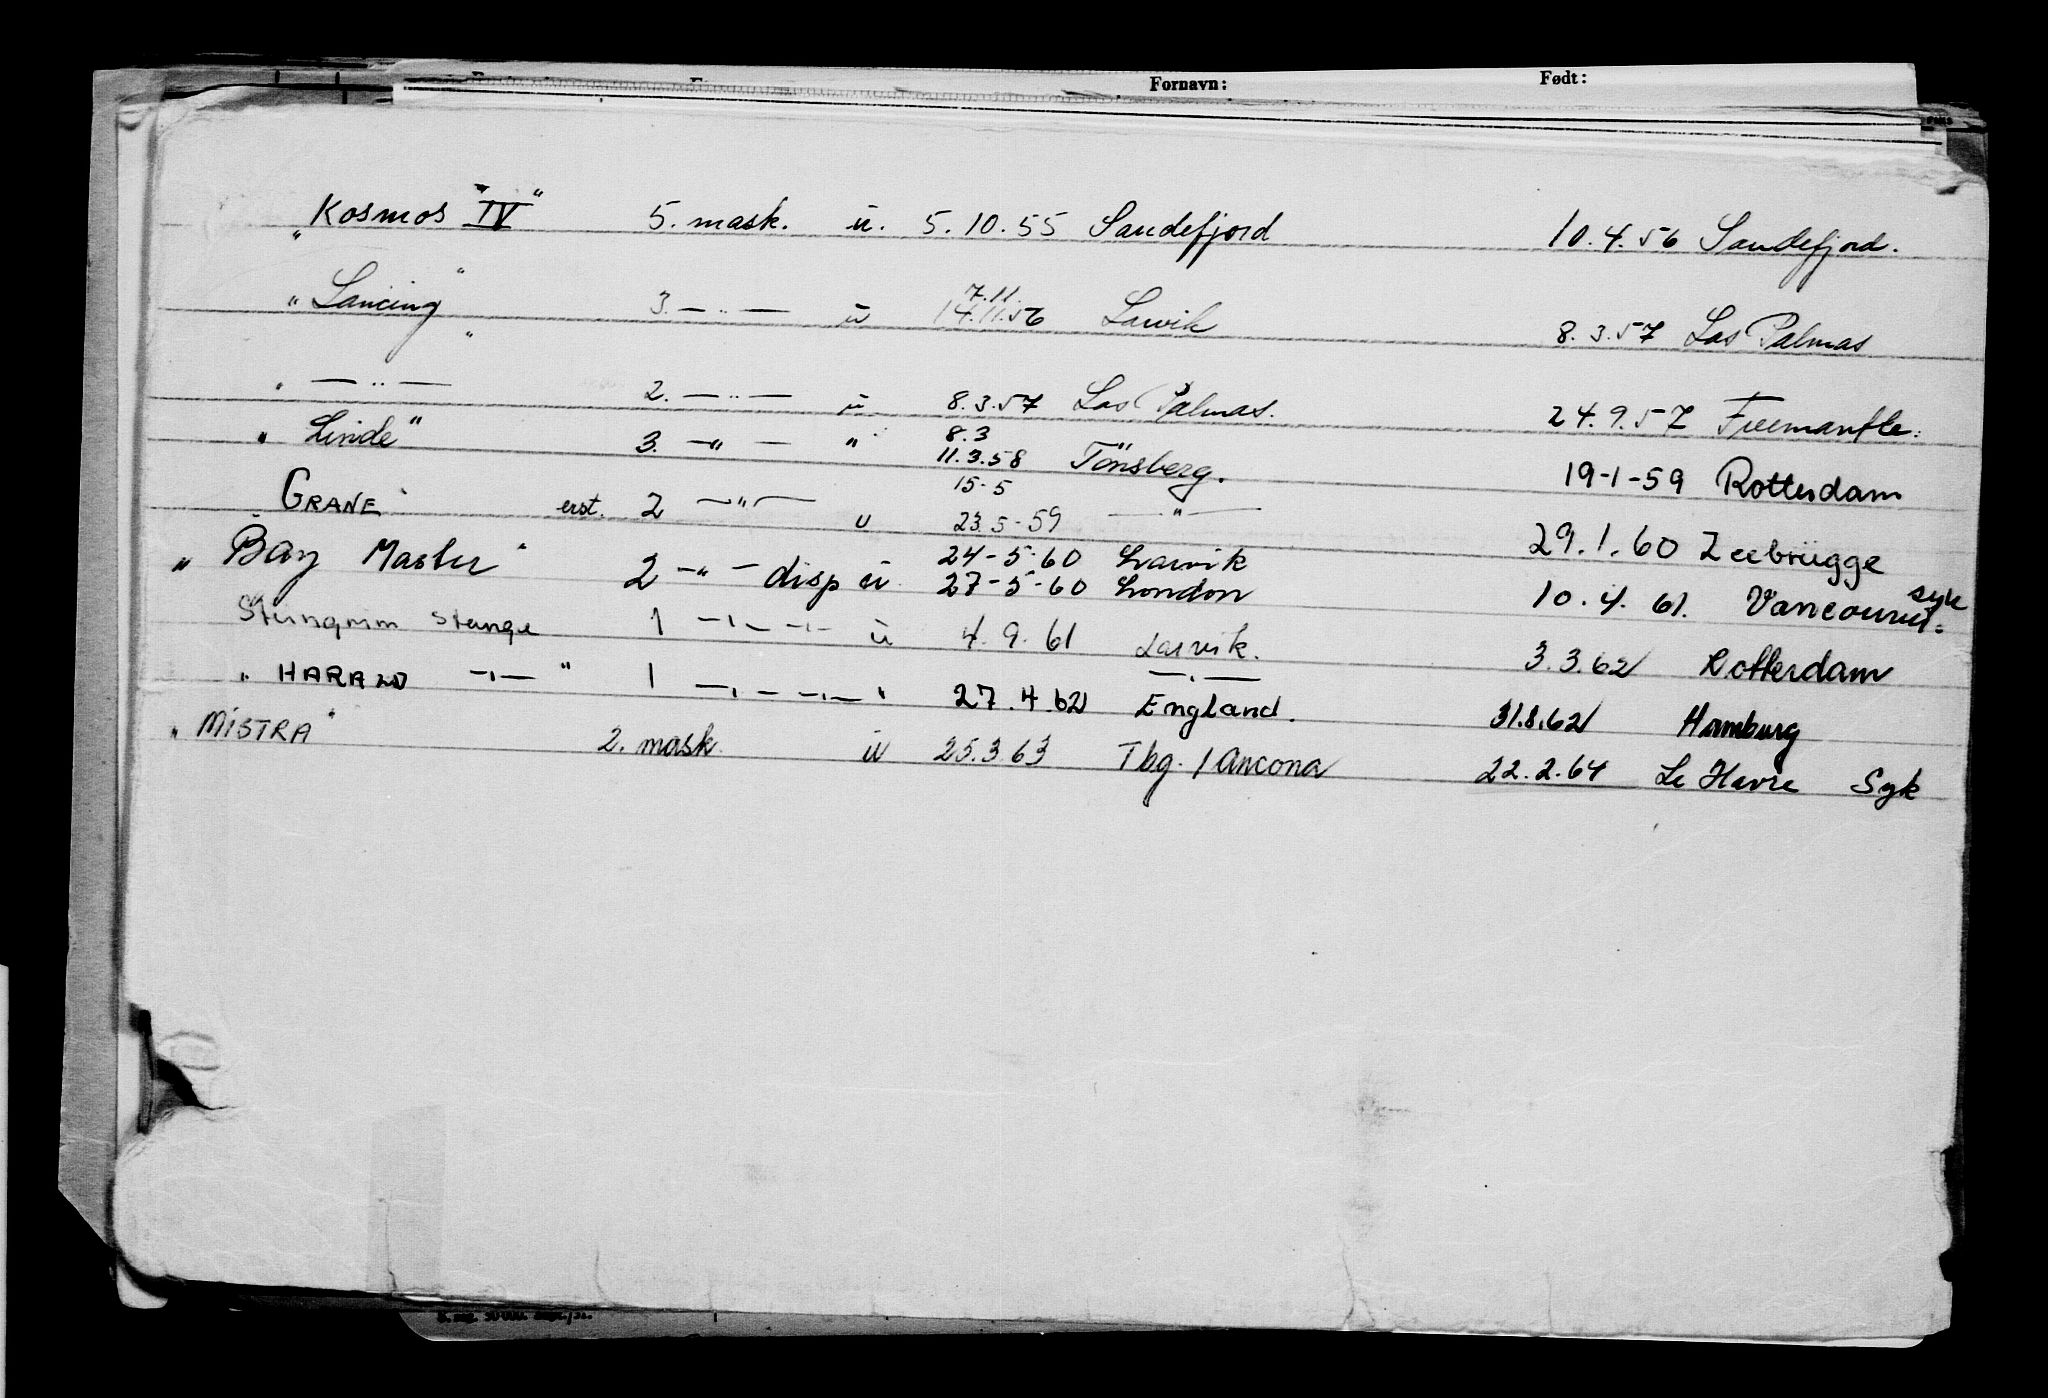 Fornavn: Født:
"Kosmos IV" 5. mask. u. 5.10.55 Sandefjord 10.4.56 Sandefjord.
"Lancing" 3. — " — u 7.11. 14.11.56 Larvik 8.3.57 Las Palmas
" — " — " 2. — " — u 8.3.57 Las Palmas. 24.9.57 Fremantle.
" Linde" 3. — " — " 8.3 11.3.58 Tönsberg. 19-1-59 Rotterdam
"GRANE" erst. 2 — " — u 15-5 23.5-59 — " — 29.1.60 Zeebrügge
" Bay Master" 2 — " — disp u. 24-5-60 Larvik 27-5-60 London 10.4.61. Vancouver. syk
Steingrim Stange 1 — " — " — u 4.9.61 Larvik. 3.3.62 Rotterdam
" HARALD — " — " 1 — " — " — " 27.4.62 — " — England. 31.8.62 Hamburg
" MISTRA" 2. mask. u 25.3.63 Tbg. / Ancona 22.2.64 Le Havre Syk